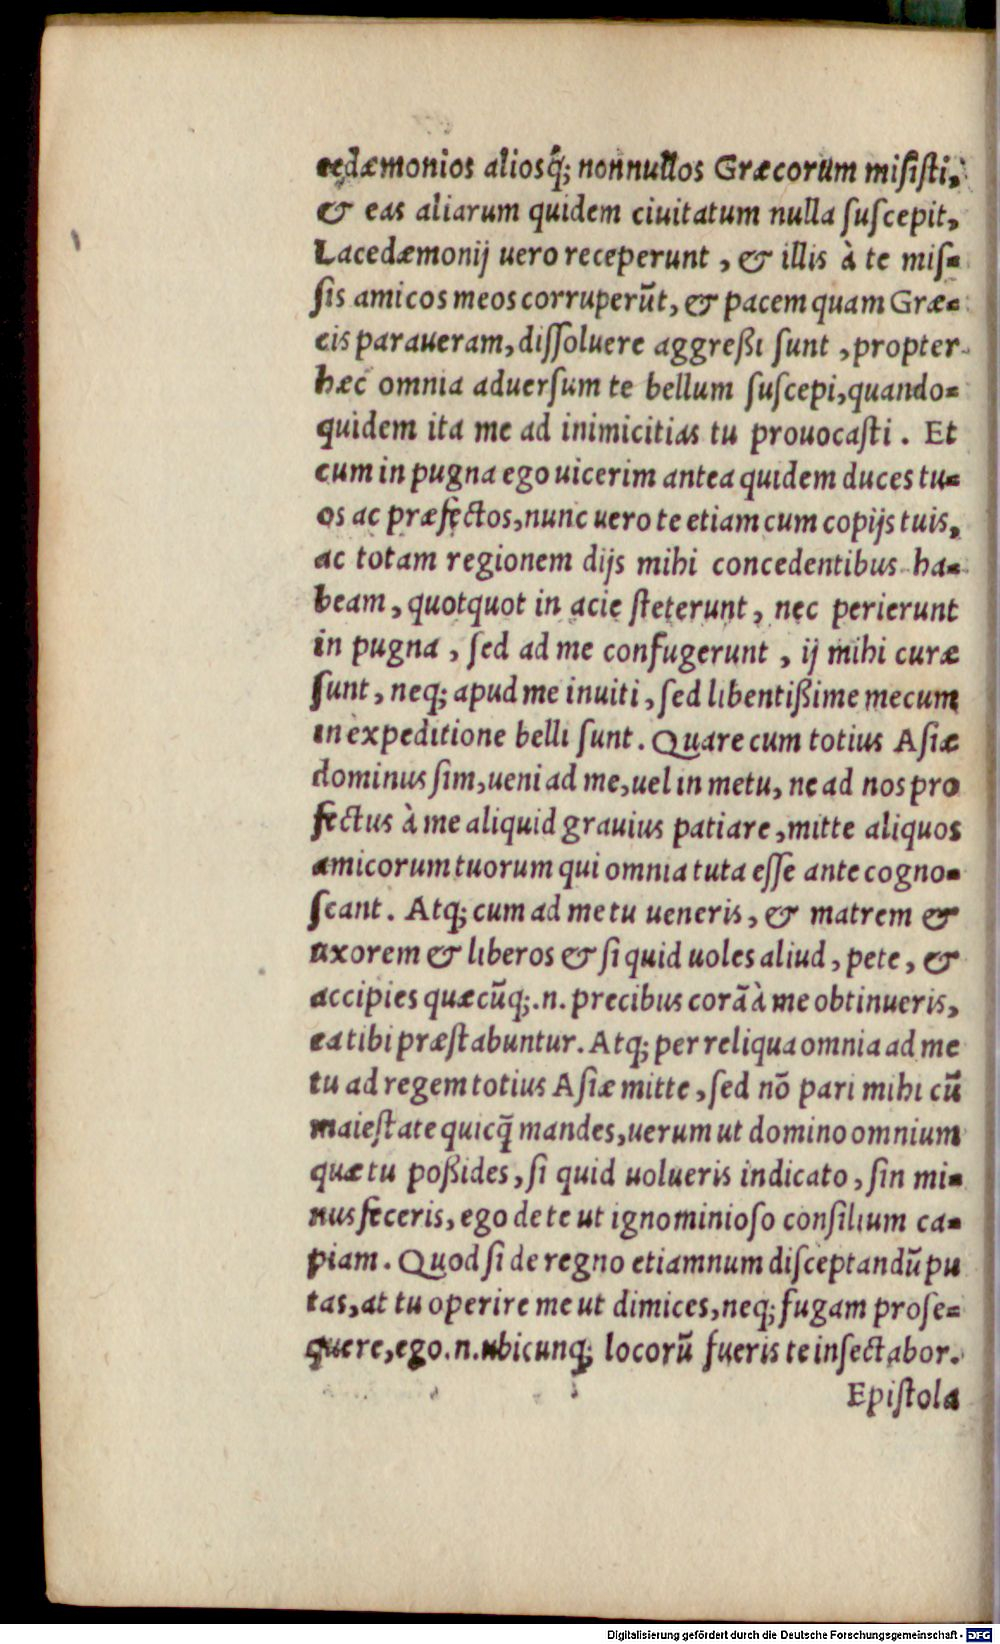 cedæmonios aliosq̃; nonnullos Græcorum misisti,
& eas aliarum quidem ciuitatum nulla suscepit,
Lacedæmonij uero receperunt, & illis à te mis=
sis amicos meos corruperũt, & pacem quam Græ=
cis paraueram, dissoluere aggreßi sunt, propter
hæc omnia aduersum te bellum suscepi, quando=
quidem ita me ad inimicitias tu prouocasti. Et
cum in pugna ego uicerim antea quidem duces tu=
os ac præfectos, nunc uero te etiam cum copijs tuis,
ac totam regionem dijs mihi concedentibus ha=
beam, quotquot in acie steterunt, nec perierunt
in pugna, sed ad me confugerunt, ij mihi curæ
sunt, neq; apud me inuiti, sed libentißime mecum
in expeditione belli sunt. Quare cum totius Asiæ
dominus sim, ueni ad me, uel in metu, ne ad nos pro
fectus à me aliquid grauius patiare, mitte aliquos
amicorum tuorum qui omnia tuta esse ante cogno=
scant. Atq; cum ad me tu ueneris, & matrem &
uxorem & liberos & si quid uoles aliud, pete, &
accipies quæcũq;.n. precibus corã à me obtinueris,
ea tibi præstabuntur. Atq; per reliqua omnia ad me
tu ad regem totius Asiæ mitte, sed nõ pari mihi cũ
maiestate quicq̃ mandes, uerum ut domino omnium
quæ tu poßides, si quid uolueris indicato, sin mi=
nus feceris, ego de te ut ignominioso consilium ca=
piam. Quod si de regno etiamnum disceptandũ pu
tas, at tu operire me ut dimices, neq; fugam prose=
quere, ego.n. ubicunq; locorũ fueris te insectabor.
Epistola
Digitalisierung gefördert durch die Deutsche Forschungsgemeinschaft - DFG